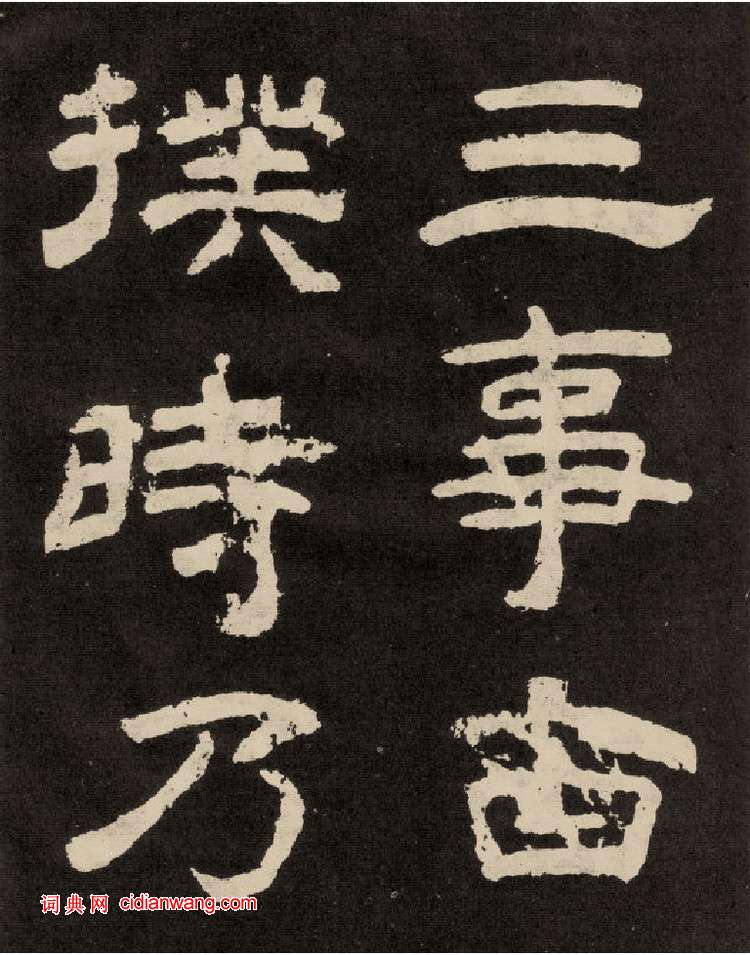 三事
撲時乃
词典网 cidianwang.com